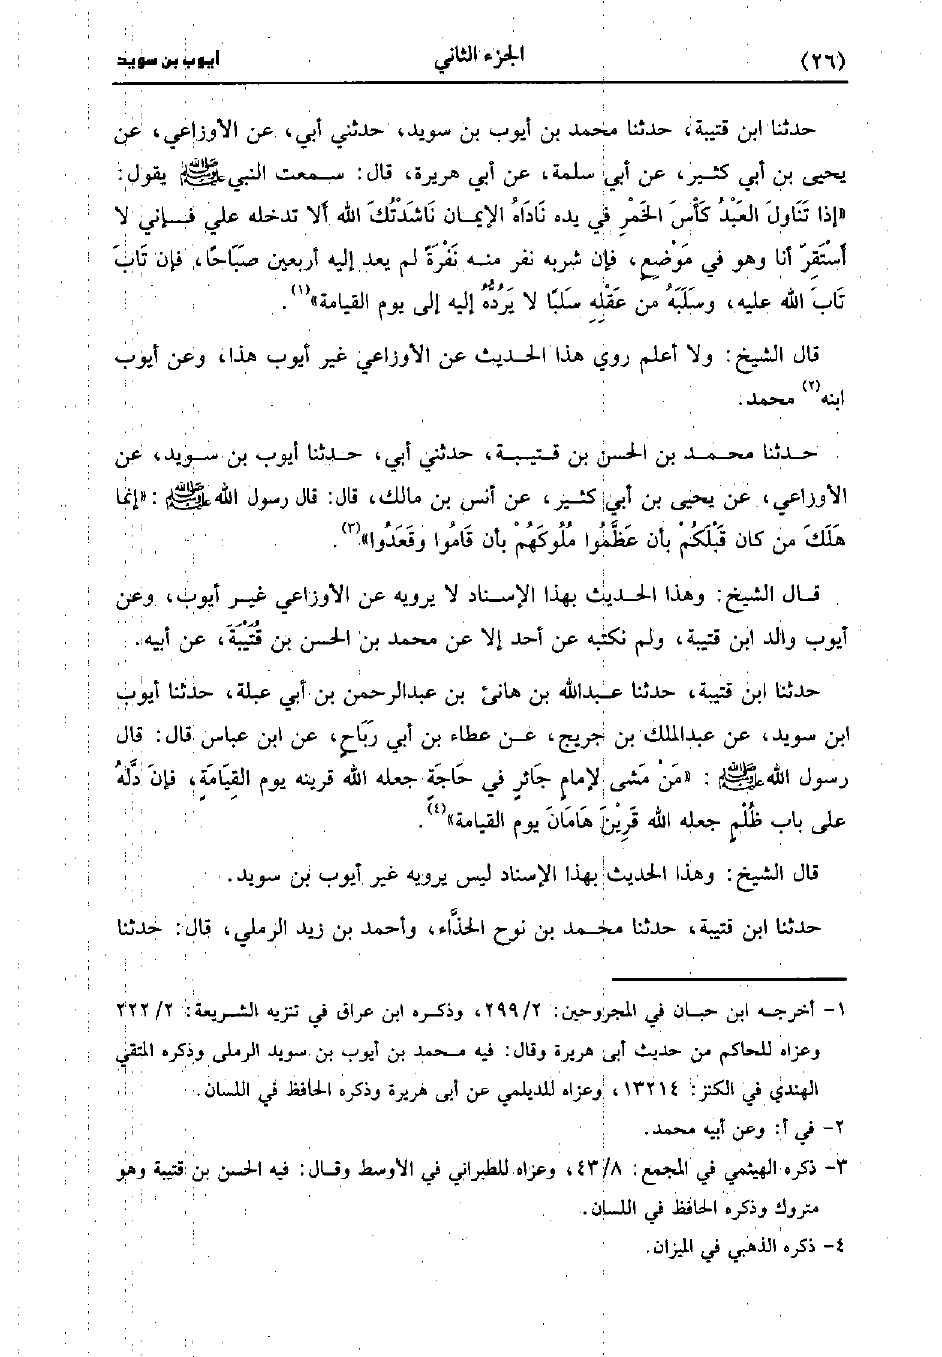 (٢٦) الجزء الثاني ايوب بن سويد
حدثنا ابن قتيبة، حدثنا محمد بن أيوب بن سويد، حدثني أبي، عن الأوزاعي، عن
يحيى بن أبي كثير، عن أبي سلمة، عن أبي هريرة، قال: سمعت النبي ﷺ يقول:
«إذا تَنَاولَ العَبْدُ كَأسَ الخَمْرِ في يده نَادَاهُ الإيمان نَاشَدْتُكَ الله ألا تدخله علي فإني لا
أسْتَقِرّ أنا وهو في مَوْضِعٍ، فإن شربه نفر منه نَفْرَةً لم يعد إليه أربعين صَبَاحًا، فإن تَابَ
تَابَ الله عليه، وسَلَبَهُ من عَقْلِهِ سَلَبًا لا يَرُدُّهُ إليه إلى يوم القيامة»(١).
قال الشيخ: ولا أعلم روي هذا الحديث عن الأوزاعي غير أيوب هذا، وعن أيوب
ابنه(٢) محمد.
حدثنا محمد بن الحسن بن قتيبة، حدثني أبي، حدثنا أيوب بن سويد، عن
الأوزاعي، عن يحيى بن أبي كثير، عن أنس بن مالك، قال: قال رسول الله ﷺ: «إنما
هَلَكَ من كان قَبْلَكُمْ بأن عَظَّمُوا مُلُوكَهُمْ بأن قَامُوا وقَعَدُوا»(٣).
قال الشيخ: وهذا الحديث بهذا الإسناد لا يرويه عن الأوزاعي غير أيوب، وعن
أيوب والد ابن قتيبة، ولم نكتبه عن أحد إلا عن محمد بن الحسن بن قُتَيْبَةَ، عن أبيه.
حدثنا ابن قتيبة، حدثنا عبدالله بن هانئ بن عبدالرحمن بن أبي عبلة، حدثنا أيوب
ابن سويد، عن عبدالملك بن جريج، عن عطاء بن أبي رَبَاحٍ، عن ابن عباس قال: قال
رسول الله ﷺ: «مَنْ مَشى لإمامٍ جَائرٍ في حَاجَةٍ جعله الله قرينه يوم القيَامَةِ، فإنَ دَلَّهُ
على باب ظُلْمٍ جعله الله قَرِيْنَ هَامَانَ يوم القيامة»(٤).
قال الشيخ: وهذا الحديث بهذا الإسناد ليس يرويه غير أيوب بن سويد.
حدثنا ابن قتيبة، حدثنا محمد بن نوح الحذَّاء، وأحمد بن زيد الرملي، قال: حدثنا
١- أخرجه ابن حبان في المجروحين: ٢/٢٩٩، وذكره ابن عراق في تنزيه الشريعة: ٢/٢٢٢
وعزاه للحاكم من حديث أبى هريرة وقال: فيه محمد بن أيوب بن سويد الرملى وذكره المتقي
الهندي في الكنز: ١٣٢١٤، وعزاه للديلمي عن أبى هريرة وذكره الحافظ في اللسان.
٢- في أ: وعن أبيه محمد.
٣- ذكره الهيثمي في المجمع: ٤٣/٨، وعزاه للطبراني في الأوسط وقال: فيه الحسن بن قتيبة وهو
متروك وذكره الحافظ في اللسان.
٤- ذكره الذهبي في الميزان.